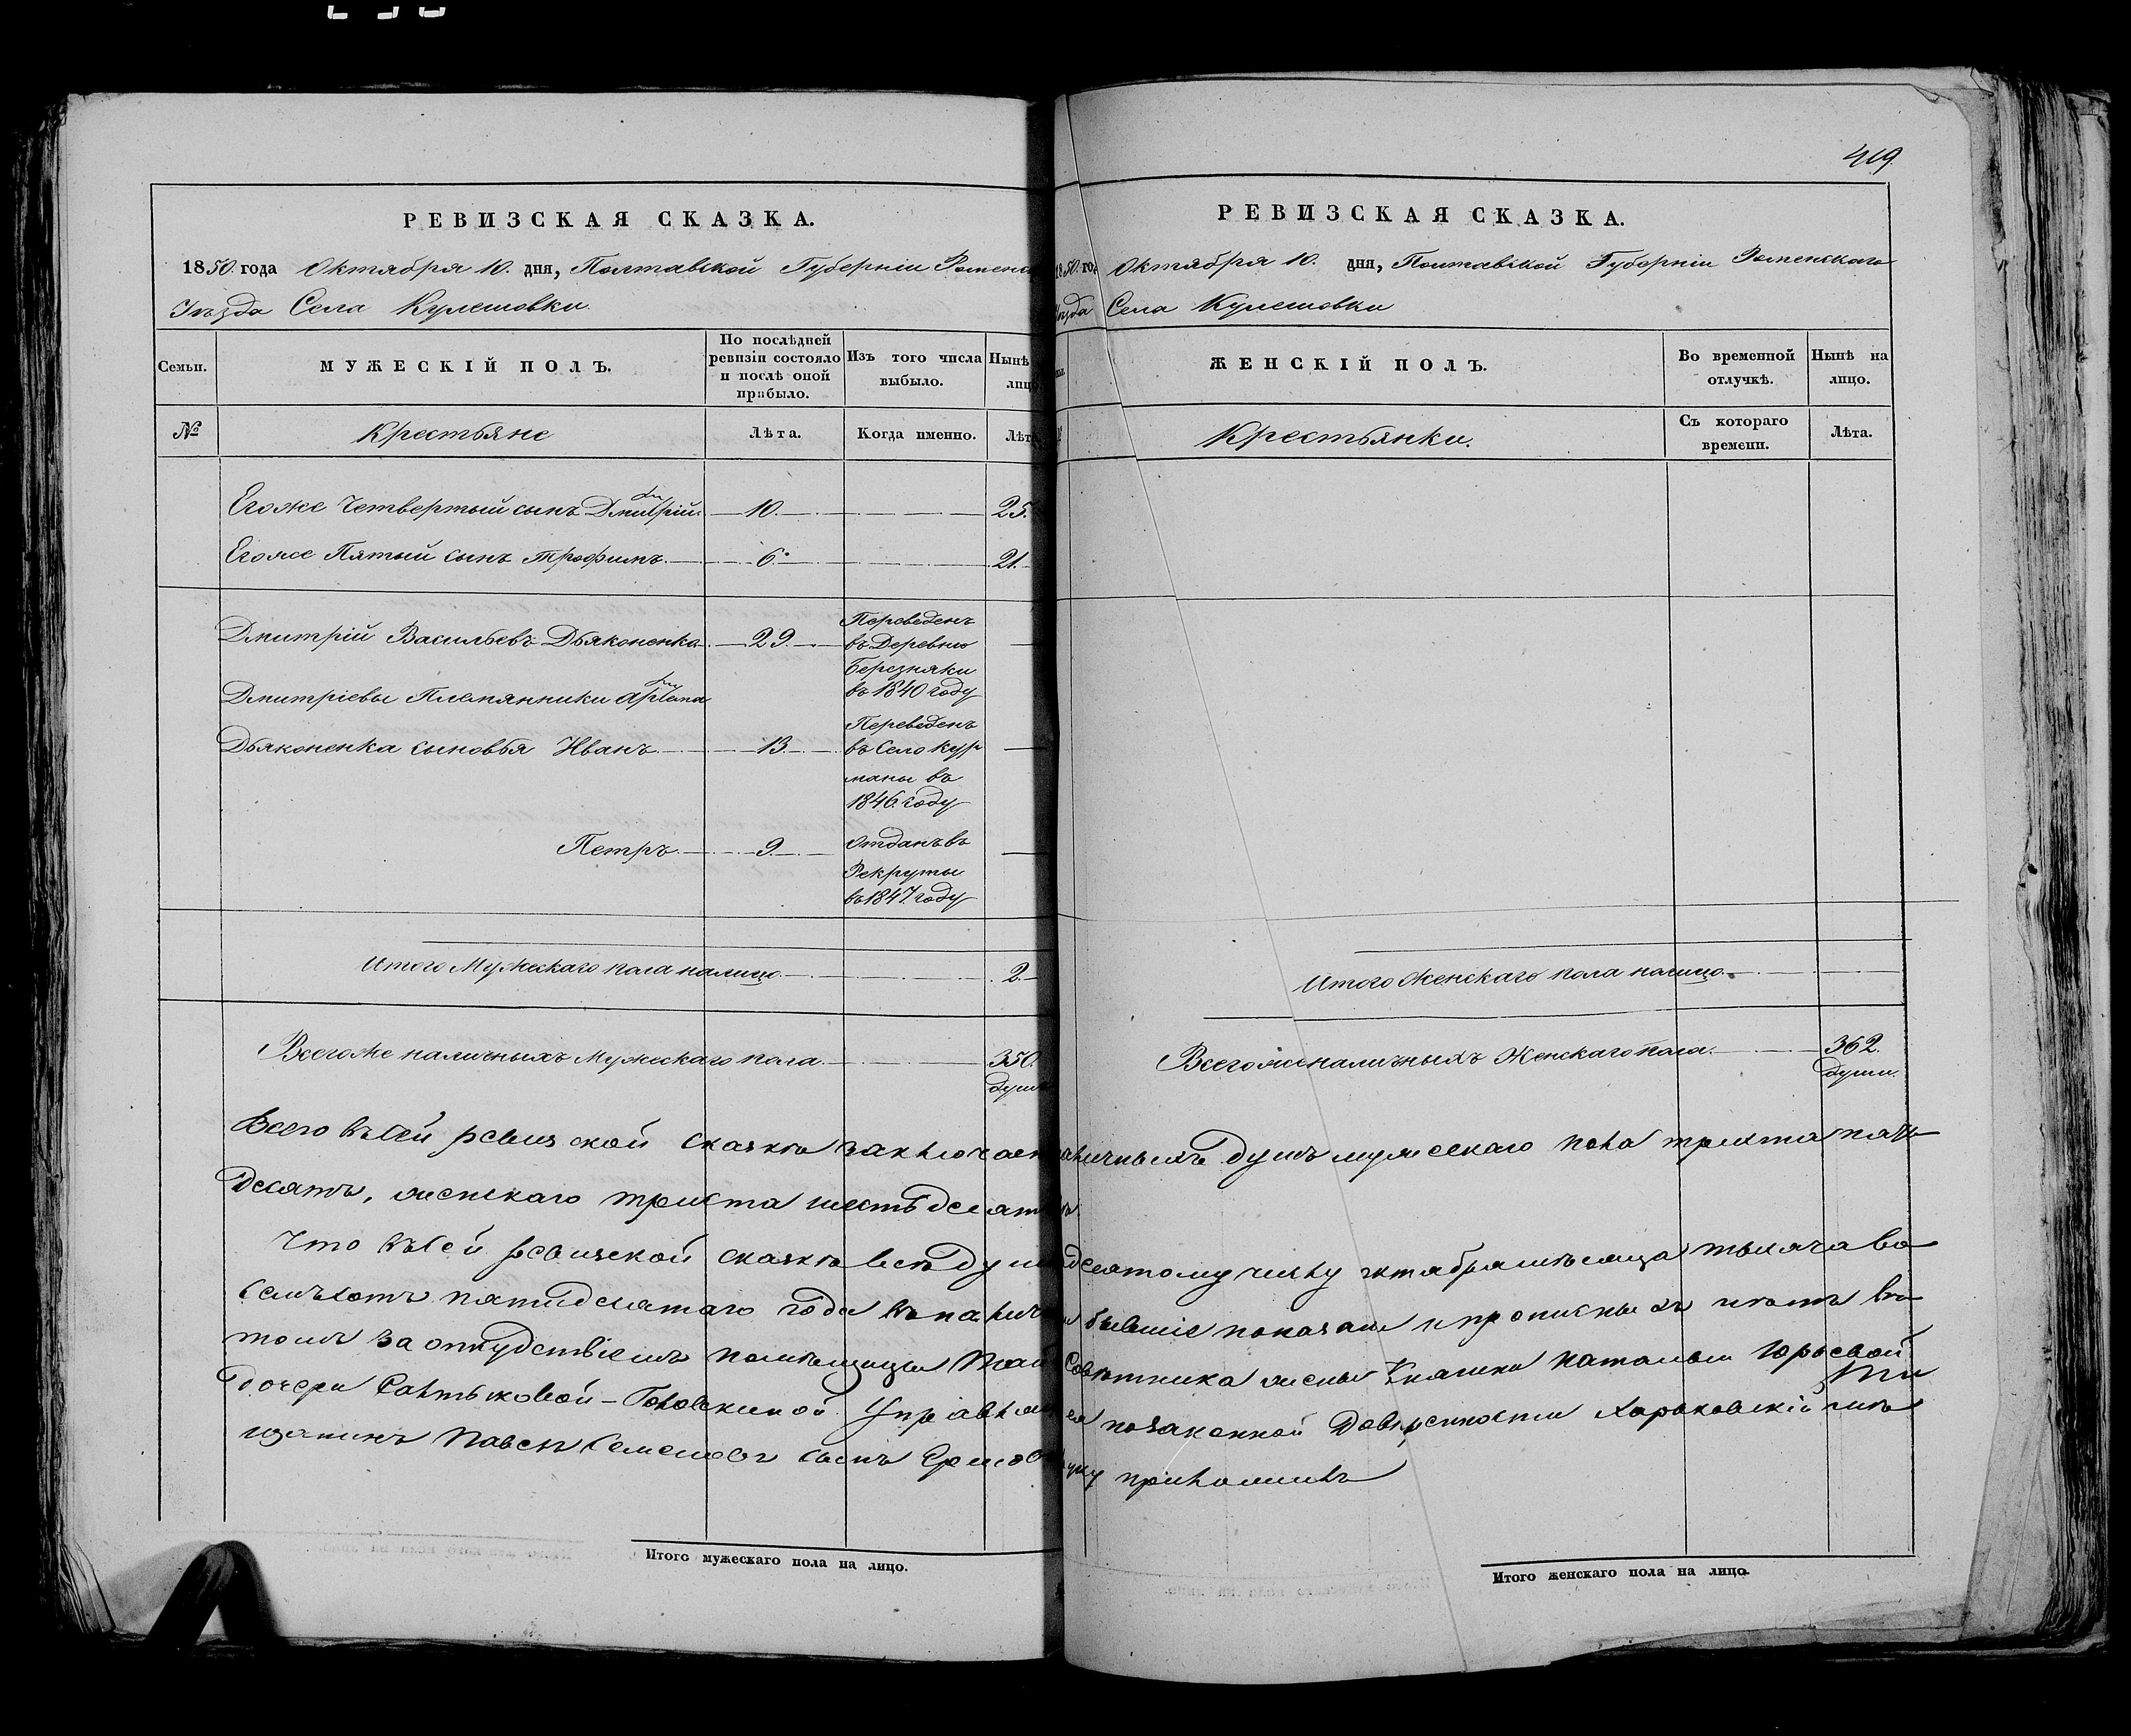 РЕВИЗСКАЯ СКАЗКА.
1850. года Октября 10. дня, Полтавской Губерніи Роменс
Уѣзда Села Кулешовки
Семьи.
МУЖЕСКІЙ ПОЛЪ.
По послѣдней ревизіи состояло и послѣ оной прибыло.
Изъ того числа выбыло.
Нынѣ лицо
№
Крестьяне
Лѣта.
Когда именно.
Лѣт
Егоже Четвертый сынъ Дмитрій. 10. 25.
Егоже Пятый сынъ Трофимъ 6. 21.
Дмитрій Васильевъ Дьяконенко 29. Переведенъ
въ Деревню
Березняки
въ 1840 году
Дмитріевы Племянники
Дьяконенка сыновья Иванъ 13. Переведенъ
въ Село Кур
маны въ
1846. году
Петръ 9. Отданъ въ
Рекруты
въ 1847. году
Итого Мужескаго пола налицо 2.
Всегоже наличныхъ Мужескаго пола. 350.
душ
419.
РЕВИЗСКАЯ СКАЗКА.
1850. го Октября 10. дня, Полтавской Губерніи Роменскаго
Села Кулешовки
ЖЕНСКІЙ ПОЛЪ.
Во временной отлучкѣ.
Нынѣ на лицо.
Крестьянки.
Съ котораго времени.
Лѣта.
Итого Женскаго пола налицо.
Всегоже наличныхъ Женскаго пола. 362.
души.
Всего въ сей ревизской сказкѣ заключает наличныхъ душъ мужескаго пола триста пять
десятъ, женскаго триста шестьдесятъ
Что въ сей ревизской сказкѣ всѣ душ десятому числу октября мѣсяца тысяча во
семъсотъ пятидесятаго года въ налич бывшіе показаны и прописныхъ нѣтъ въ
томъ за отсудствіемъ помѣщицы Тай Совѣтника жены Княжны Натальи Юрьевой
дочери Салтыковой-Головкиной Управля по законной Довѣренности Харьковскій мѣ
щанинъ Павелъ Семеновъ сынъ руку приложилъ
Итого мужескаго пола на лицо.
Итого женскаго пола на лицо.